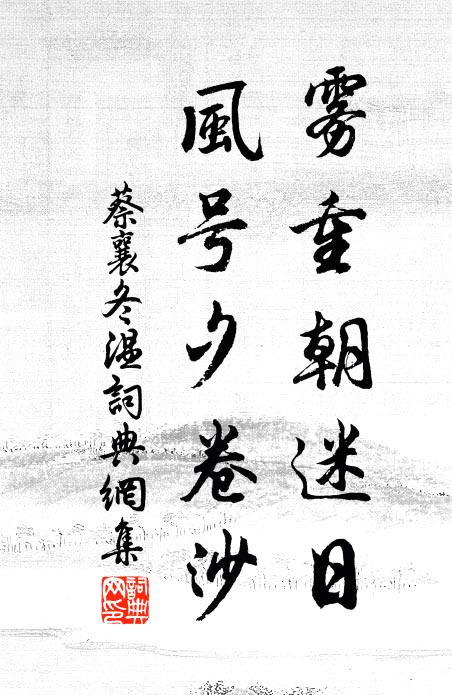 雾重朝迷日
風号夕卷沙
蔡襄冬温詞典網集
詞典网印